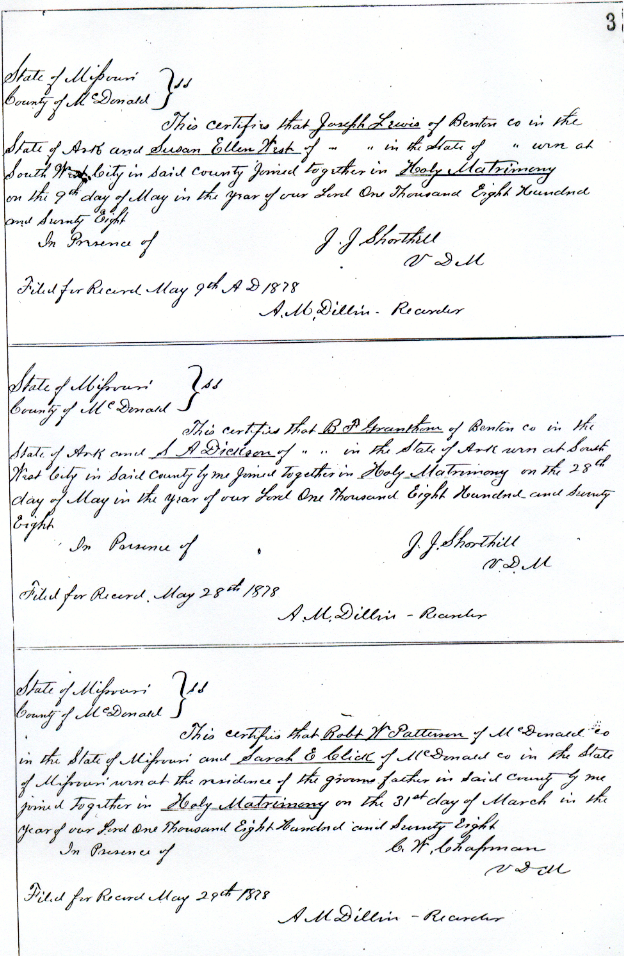 3
State of Missouri
County of McDonald } ss
This certifies that Joseph Lewis of Benton co in the
State of Ark and Susan Ellen West of " " in the State of " wrn at
South West City in said County Joined together in Holy Matrimony
on the 9th day of May in the year of our Lord One Thousand Eight Hundred
and Seventy Eight
In Presence of J. J. Shorthill
V D M
Filed for Record May 9th A D 1878
A. M. Dillin - Recorder
State of Missouri
County of McDonald } ss
This certifies that B F Grantham of Benton co in the
State of Ark and S A Dickson of " " in the State of Ark wrn at South
West City in said County by me Joined together in Holy Matrimony on the 28th
day of May in the year of our Lord One Thousand Eight Hundred and Seventy
Eight
In Presence of J. J. Shorthill
V. D. M
Filed for Record May 28th 1878
A. M. Dillin - Recorder
State of Missouri
County of McDonald } ss
This certifies that Robt W Patterson of McDonald co
in the State of Missouri and Sarah E Click of McDonald co in the State
of Missouri wrn at the residence of the grooms father in said County by me
joined together in Holy Matrimony on the 31st day of March in the
year of our Lord One Thousand Eight Hundred and Seventy Eight
In Presence of C. W. Chapman
V D M
Filed for Record May 29th 1878
A M Dillin - Recorder